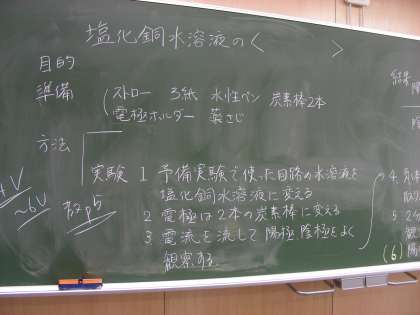 塩化銅水溶液の〈　　　〉
目的
準備
ストロー　ろ紙　水性ペン　炭素棒2本
電極ホルダー　薬さじ
方法
実験 1 予備実験で使った回路の水溶液を
塩化銅水溶液に変える
2 電極は2本の炭素棒に変える
3 電流を流して陽極、陰極をよく
観察する
4V
~6V
教p5
結果
陽
陰
4
5
観
(6) 陽